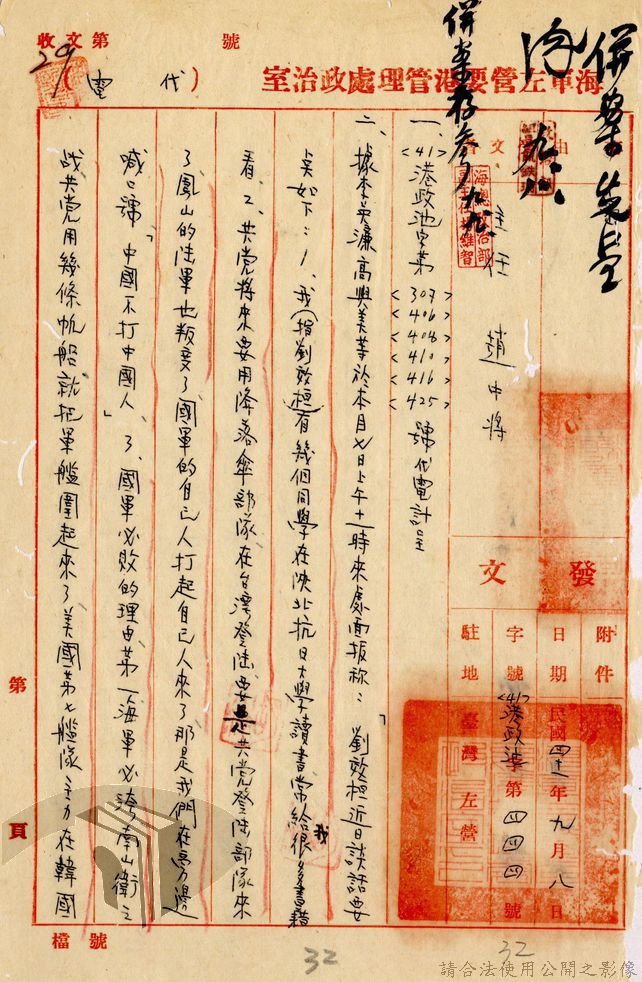 併案存參 九.九.
海軍左營要港管理處政治室
(代電)
收文第 號
29
主任 趙 中將
發文
附件
日期 民國四十一年九月八日
字號 (41)港政澤第四四四號
駐地 臺灣左營
一、(41)港政池字第<307><406><408><410><416><425>號代電計呈
二、據李英濂高興美等於本月七日上午十一時來處面报称:「劉效桓近日談話要
奌如下:1、我(指劉效桓)有幾個同學在陕北抗日大學讀書常給我很多書籍
看、2、共党將來要用降落傘部隊、在台湾登陸、要是共党登陸部隊來
了鳳山的陆軍也叛变了、國軍的自己人打起自己人來了、那是我們在旁邊
喊口號「中國不打中國人」、3、國軍必敗的理由第一海軍必誇南山衛之
战共党用幾條帆船就把軍艦圍起來了、美國第七艦隊主力在韓國
第 頁
檔號
32
32
請合法使用公開之影像